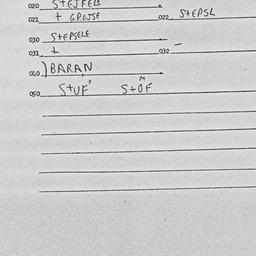 020 STEJFELE
021 + GROSSE 022 STEPSL
030 STEPSELE
031 + 032 –
040 ) BARAN
050 STUF' STOF M